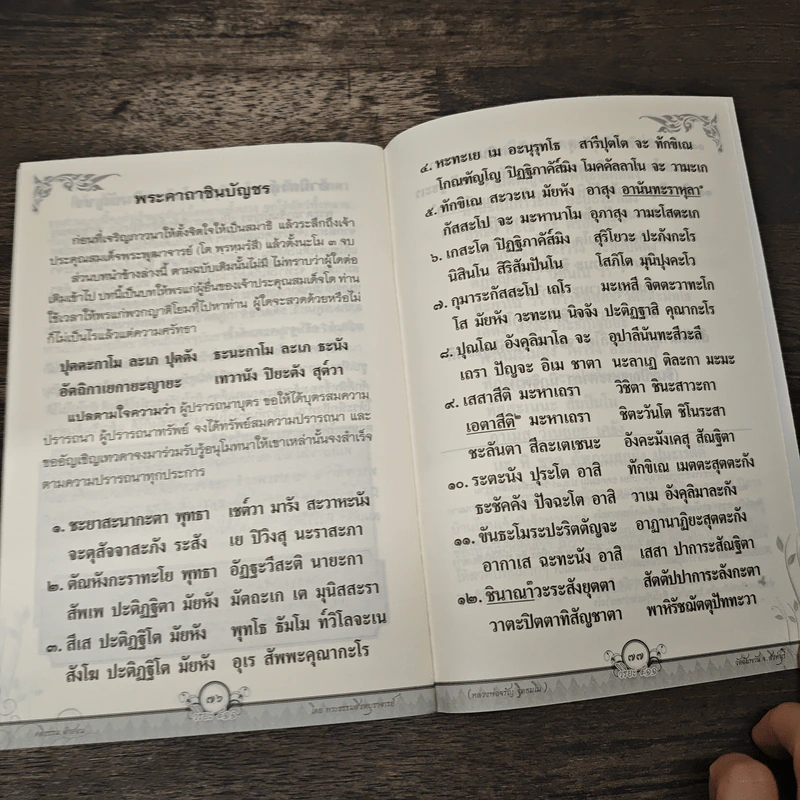 พระคาถาชินบัญชร
ก่อนที่เจริญภาวนาให้ตั้งจิตใจให้เป็นสมาธิ แล้วระลึกถึงเจ้า
ประคุณสมเด็จพระพุฒาจารย์ (โต พรหมรํสี) แล้วตั้งนะโม ๓ จบ
ส่วนบทนำข้างล่างนี้ ตามฉบับเดิมนั้นไม่มี ไม่ทราบว่าผู้ใดต่อ
เติมเข้าไป บทนี้เป็นบทให้พรแก่ผู้อื่นของเจ้าประคุณสมเด็จโต ท่าน
ใช้เวลาให้พรแก่พวกญาติโยมที่ไปหาท่าน ผู้ใดจะสวดด้วยหรือไม่
ก็ไม่เป็นไรแล้วแต่ความศรัทธา
ปุตตะกาโม ละเภ ปุตตัง ธะนะกาโม ละเภ ธะนัง
อัตถิกาเยกายะญายะ เทวานัง ปิยะตัง สุต์วา
แปลตามใจความว่า ผู้ปรารถนาบุตร ขอให้ได้บุตรสมความ
ปรารถนา ผู้ปรารถนาทรัพย์ จงได้ทรัพย์สมความปรารถนา และ
ขออัญเชิญเทวดาจงมาร่วมรับรู้อนุโมทนาให้เขาเหล่านั้นจงสำเร็จ
ตามความปรารถนาทุกประการ
๑. ชะยาสะนากะตา พุทธา เชต์วา มารัง สะวาหะนัง
จะตุสัจจาสะภัง ระสัง เย ปิวิงสุ นะราสะภา
๒. ตัณหังกะราทะโย พุทธา อัฏฐะวีสะติ นายะกา
สัพเพ ปะติฏฐิตา มัยหัง มัตถะเก เต มุนิสสะรา
๓. สีเส ปะติฏฐิโต มัยหัง พุทโธ ธัมโม ท๎วิโลจะเน
สังโฆ ปะติฏฐิโต มัยหัง อุเร สัพพะคุณากะโร
๗๖
๔. หะทะเย เม อะนุรุทโธ สารีปุตโต จะ ทักขิเณ
โกณฑัญโญ ปิฏฐิภาคัส์มิง โมคคัลลาโน จะ วามะเก
๕. ทักขิเณ สะวะเน มัยหัง อาสุง อานันทะราหุลา
กัสสะโป จะ มะหานาโม อุภาสุง วามะโสตะเก
๖. เกสะโต ปิฏฐิภาคัส์มิง สุริโยวะ ปะภังกะโร
นิสินโน สิริสัมปันโน โสภิโต มุนิปุงคะโว
๗. กุมาระกัสสะโป เถโร มะเหสี จิตตะวาทะโก
โส มัยหัง วะทะเน นิจจัง ปะติฏฐาสิ คุณากะโร
๘. ปุณโณ อังคุลิมาโล จะ อุปาลีนันทะสีวะลี
เถรา ปัญจะ อิเม ชาตา นะลาเฏ ติละกา มะมะ
๙. เสสาสีติ มะหาเถรา วิชิตา ชินะสาวะกา
เอตาสีติ๒ มะหาเถรา ชิตะวันโต ชิโนระสา
ชะลันตา สีละเตเชนะ อังคะมังเคสุ สัณฐิตา
๑๐. ระตะนัง ปุระโต อาสิ ทักขิเณ เมตตะสุตตะกัง
ธะชัคคัง ปัจฉะโต อาสิ วาเม อังคุลิมาละกัง
๑๑. ขันธะโมระปะริตตัญจะ อาฏานาฏิยะสุตตะกัง
อากาเส ฉะทะนัง อาสิ เสสา ปาการะสัณฐิตา
๑๒. ชินาณาวะระสังยุตตา สัตตัปปาการะลังกะตา
วาตะปิตตาทิสัญชาตา พาหิรัชฌัตตุปัททะวา
๗๗